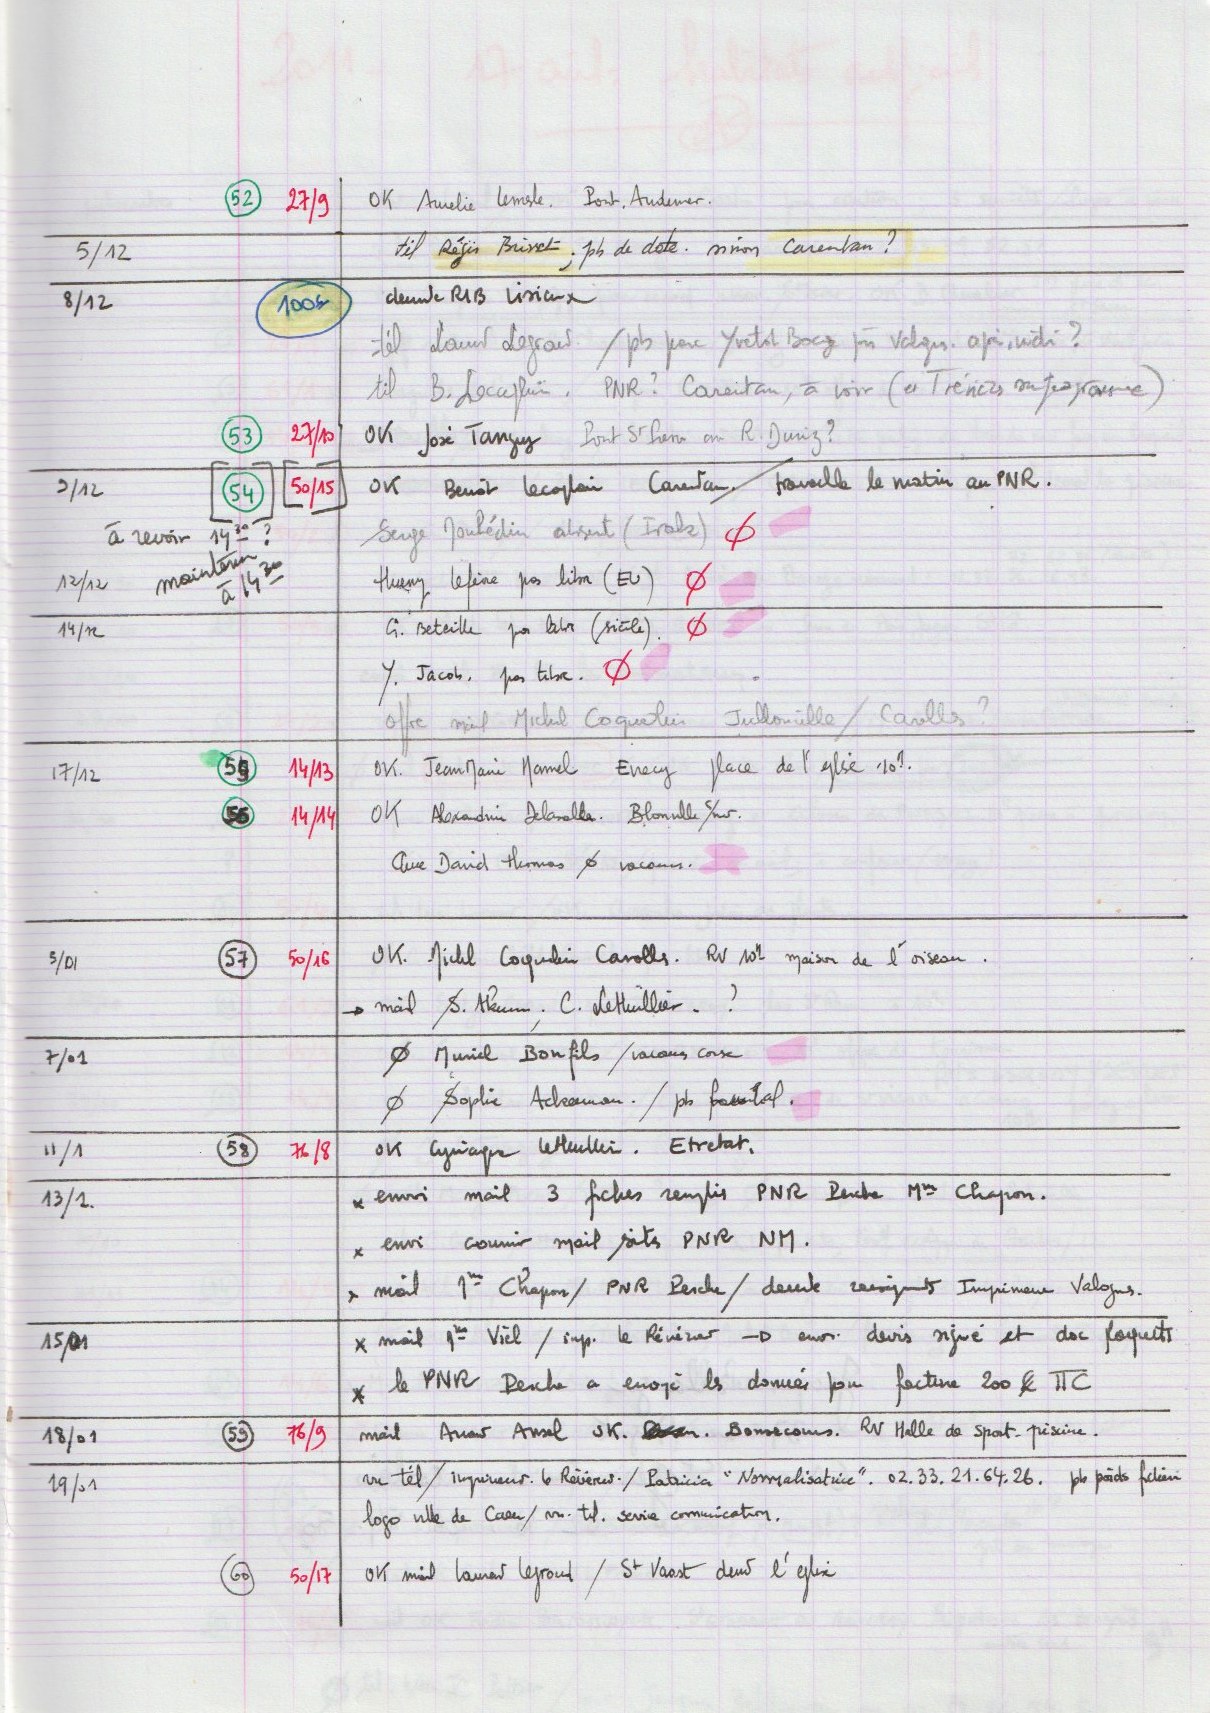 52 27/9 OK Aurelie Lemesle. Pont. Audemer.
5/12 tél Régis Brisset ; pb de date. sinon Carentan ?
8/12 100 RIB Lisieux
tél / pb parc Yvetot Bocage Valognes. ?
tél B. Lecaplain. PNR ? Carentan, à voir (et
53 27/10 OK José Tanguy Pont St Pierre ou R. ?
9/12 54 50/15 OK Benoît Lecaplain Carentan / travaille le matin au PNR.
à revoir 14 30 ? Serge absent (Irak) Ø
maintenu à 14 30
12/12 Thierry Lefèvre pas libre (EU) Ø
14/12 G. Beteille pas libre (Sicile). Ø
Y. Jacob. pas libre. Ø
offre mail Michel Coquelin Jullouville / Carolles ?
17/12 55 14/13 OK. Jean Marie Hamel Evrecy place de l'église 10h.
56 14/14 OK Alexandrine Delassalle. Blonville s/mer.
David Thomas Ø vacances.
5/01 57 50/16 OK. Michel Coquelin Carolles. RV 10h maison de l'oiseau.
→ mail S. C. Lethuillier. ?
7/01 Ø Muriel Bonfils / vacances corse
Ø Sophie Ackerman. / pb familial.
11/1 58 76/8 OK Cyriaque Lethuillier. Etretat.
13/1. x envoi mail 3 fiches remplis PNR Perche Mme Chapon.
x envoi courrier mail sites PNR NM.
x mail Mme Chapon / PNR Perche / Imprimeur Valognes.
15/01 x mail Mme Viel / imp. le Révérend → envoi devis signé et doc
x le PNR Perche a envoyé les données pour facture 200 € TTC
18/01 59 76/9 mail Ansel OK. Bonsecours. RV Halle de sport-piscine.
19/01 tél / imprimeur le Révérend / Patricia "Normalisatrice". 02.33.21.64.26. pb poids fichier
logo ville de Caen / tél. service communication.
60 50/17 OK mail Laurent Legrand / St Vaast l'église